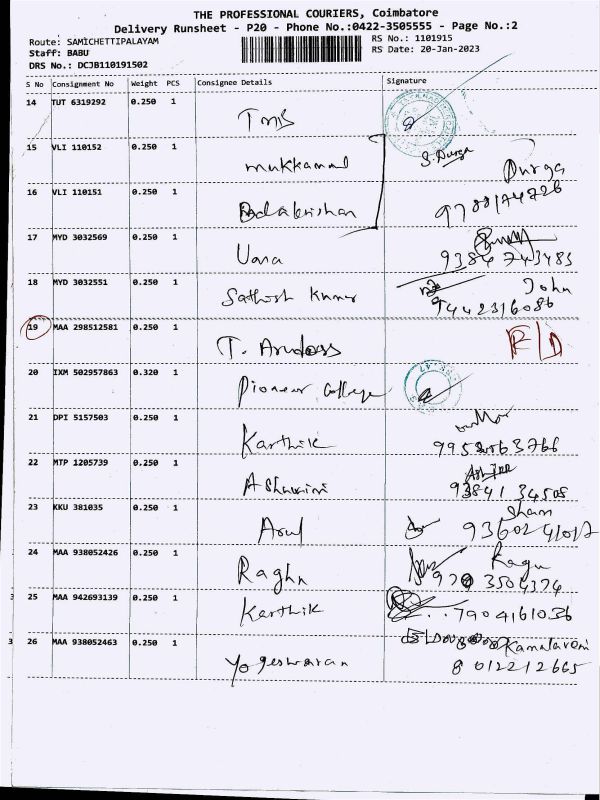 THE PROFESSIONAL COURIERS, Coimbatore
Delivery Runsheet - P20 - Phone No.:0422-3505555 - Page No.:2
Route: SAMICHETTIPALAYAM RS No.: 1101915
Staff: BABU RS Date: 20-Jan-2023
DRS No.: DCJB110191502
S No Consignment No Weight PCS Consignee Details Signature
14 TUT 6319292 0.250 1
15 VLI 110152 0.250 1 S. Durga
Mukkammal Durga
16 VLI 110151 0.250 1
Balakrishan
17 MYD 3032569 0.250 1
Uana 9384743485
18 MYD 3032551 0.250 1 John
Sathish Kumar 9442316086
19 MAA 298512581 0.250 1 R/D
T. Arudoss
20 IXM 502957863 0.320 1
Pioneer College
21 DPI 5157503 0.250 1
Karthik
22 MTP 1205739 0.250 1
Ashwini 93841 34508
23 KKU 381035 0.250 1 Sham
Arul
24 MAA 938052426 0.250 1 Ragu
Raghu
25 MAA 942693139 0.250 1
Karthik 7904161036
26 MAA 938052463 0.250 1 Kamalaveni
Yogeshwaran 8012212665